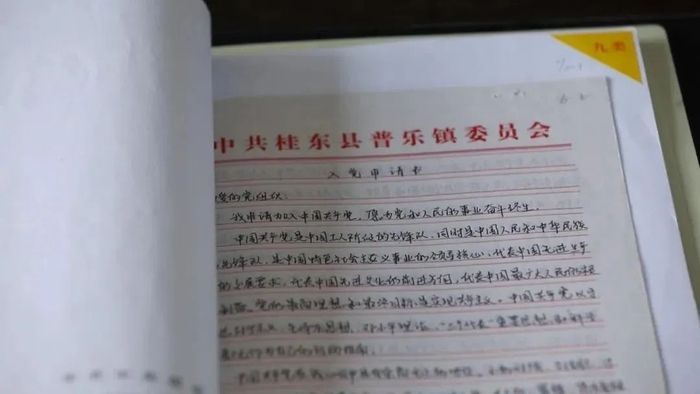 九类
中共桂东县普乐镇委员会
入党申请书
的党组织：
我申请加入中国共产党，愿为党和人民的事业奋斗终生。
中国共产党是中国工人阶级的先锋队，同时是中国人民和中华民族
先锋队，是中国特色社会主义事业的领导核心，代表中国先进生产
的发展要求，代表中国先进文化的前进方向，代表中国最广大人民的根
利益。党的最高理想和最终目标是实现共产主义。中国共产党以马
列主义、毛泽东思想、邓小平理论、“三个代表”重要思想和科学
发展观作为自己的行动指南。
中国共产党